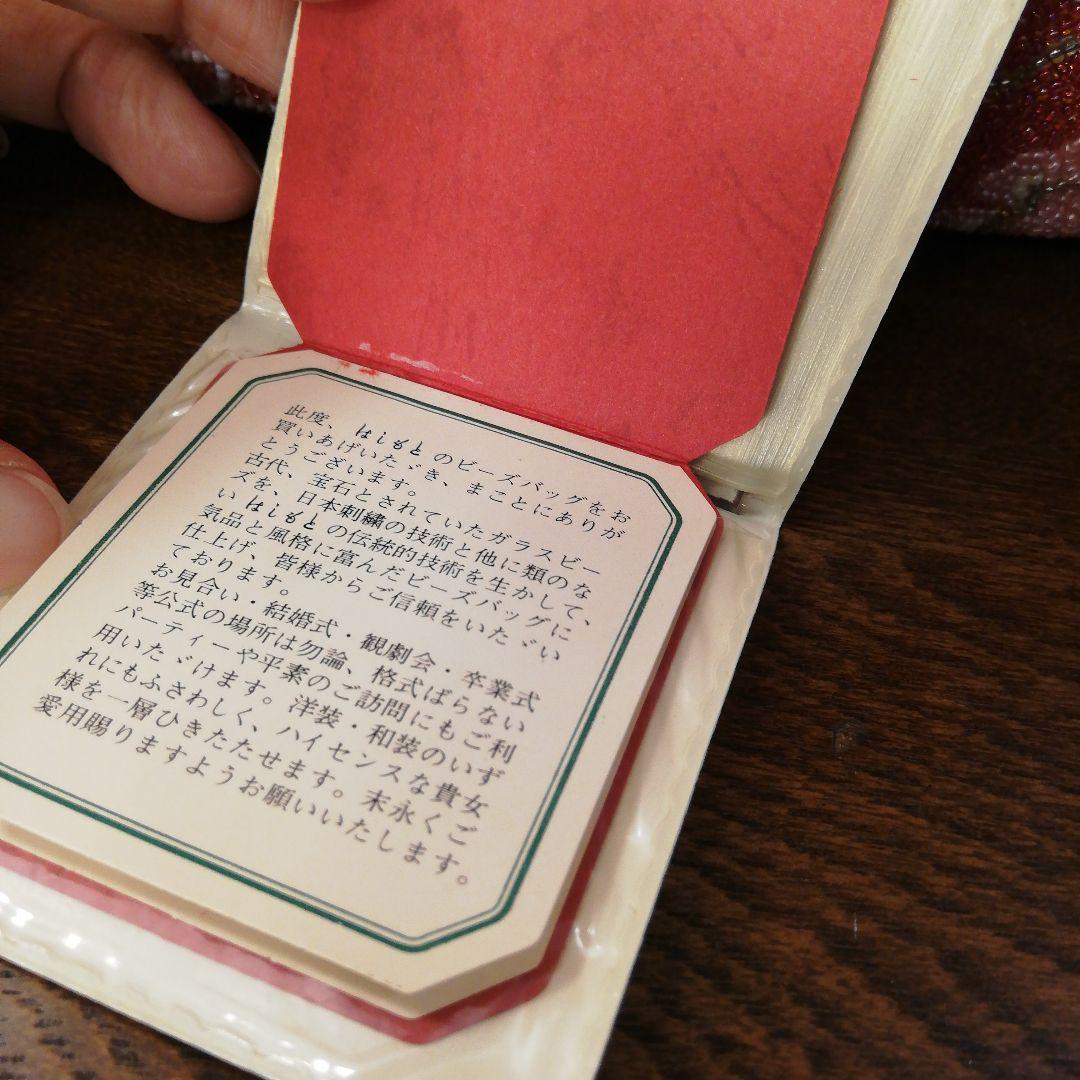 此度、はしもとのビーズバッグをお
買いあげいたゞき、まことにありが
とうございます。
古代、宝石とされていたガラスビー
ズを、日本刺繍の技術と他に類のな
いはしもとの伝統的技術を生かして、
気品と風格に富んだビーズバッグに
仕上げ、皆様からご信頼をいたゞい
ております。
お見合い・結婚式・観劇会・卒業式
等公式の場所は勿論、格式ばらない
パーティーや平素のご訪問にもご利
用いたゞけます。洋装・和装のいず
れにもふさわしく、ハイセンスな貴女
様を一層ひきたたせます。末永くご
愛用賜りますようお願いいたします。